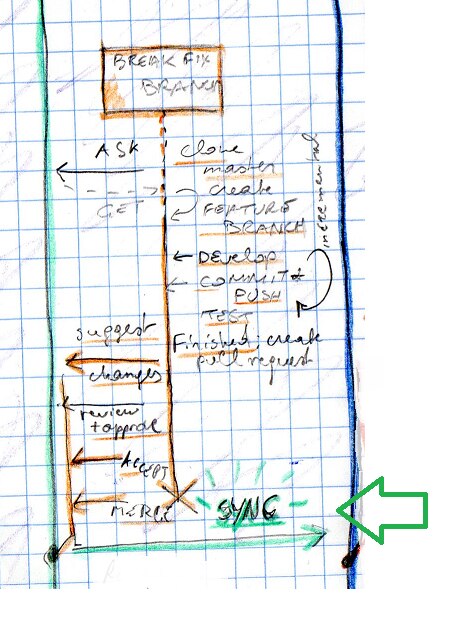 BREAK FIX
BRANCH
ASK
GET
clone
master
create
FEATURE
BRANCH
incremental
DEVELOP
COMMIT &
PUSH
TEST
suggest
changes
Finished: create
pull request
review
+ approve
ACCEPT
MERGE
SYNC